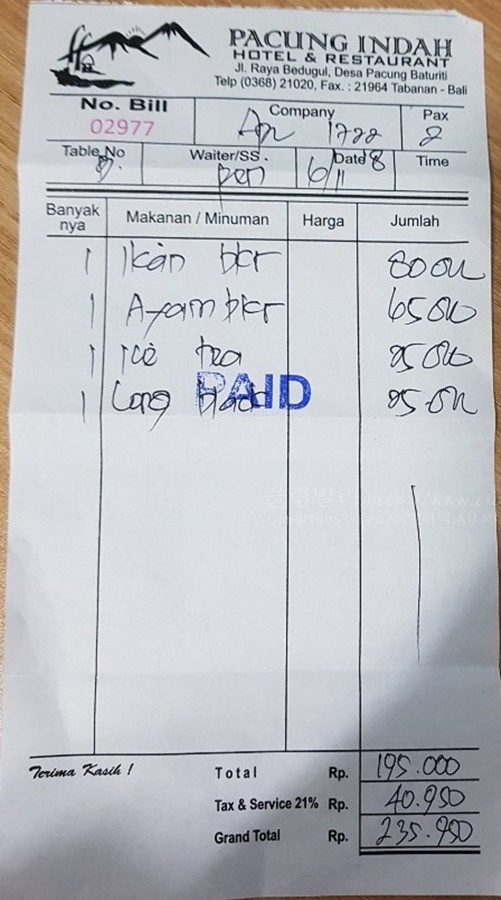 PACUNG INDAH
HOTEL & RESTAURANT
Jl. Raya Bedugul, Desa Pacung Baturiti
Telp (0368) 21020, Fax. : 21964 Tabanan - Bali
No. Bill Company Pax
02977 1722 2
Table No Waiter/SS. Date Time
6/11 8
Banyak nya Makanan / Minuman Harga Jumlah
1 Ikan bkr
1 Ayam bkr
1 Ice tea
1 Long black
PAID
Terima Kasih !
Total Rp. 195.000
Tax & Service 21% Rp. 40.950
Grand Total Rp. 235.950